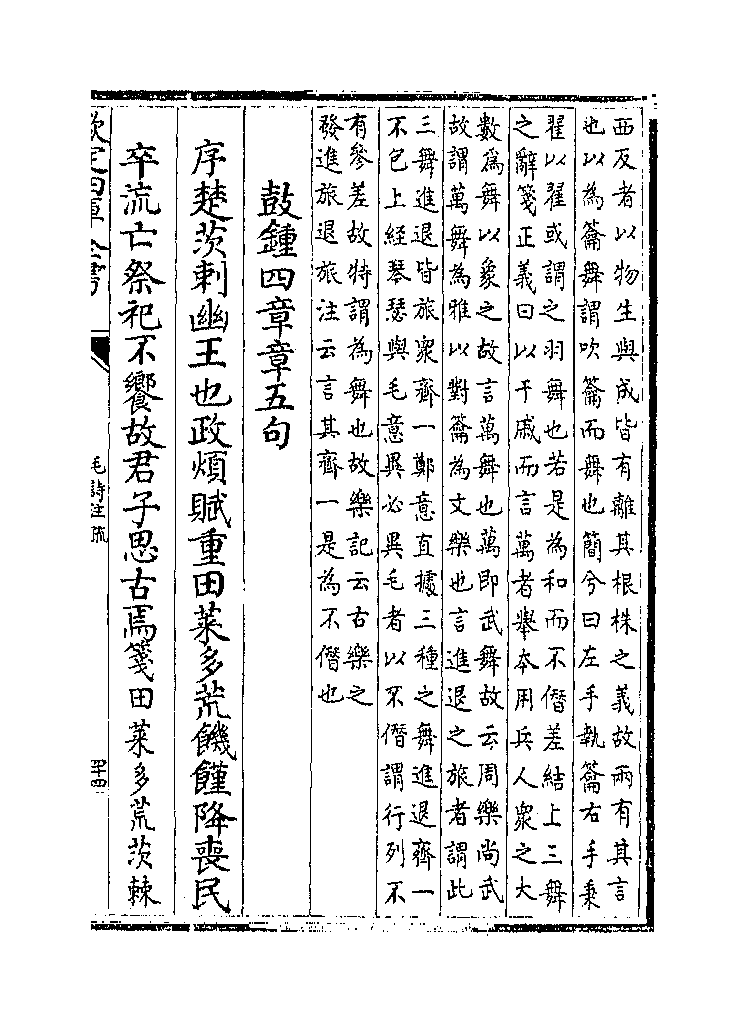 西及者以物生與成皆有離其根株之義故兩有其言
也以為籥舞謂吹籥而舞也簡兮曰左手執籥右手秉
翟以翟或謂之羽舞也若是為和而不僭差結上三舞
之辭箋正義曰以干戚而言萬者舉本用兵人衆之大
數為舞以象之故言萬舞也萬即武舞故云周樂尚武
故謂萬舞為雅以對籥為文樂也言進退之旅者謂此
三舞進退皆旅衆齊一鄭意直據三種之舞進退齊一
不包上經琴瑟與毛意異必異毛者以不僭謂行列不
有參差故特謂為舞也故樂記云古樂之
發進旅退旅注云言其齊一是為不僭也
鼓鍾四章章五句
序楚茨刺幽王也政煩賦重田萊多荒饑饉降喪民
卒流亡祭祀不饗故君子思古焉箋田萊多荒茨棘
欽定四庫全書
毛詩注疏
四十四